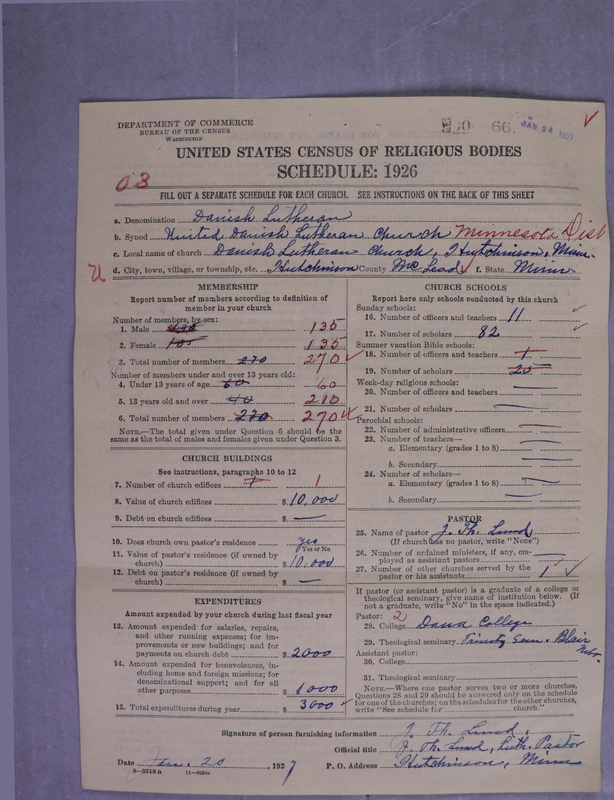 DEPARTMENT OF COMMERCE
BUREAU OF THE CENSUS
WASHINGTON
66. JAN 24 1927
UNITED STATES CENSUS OF RELIGIOUS BODIES
SCHEDULE: 1926
03
FILL OUT A SEPARATE SCHEDULE FOR EACH CHURCH. SEE INSTRUCTIONS ON THE BACK OF THIS SHEET
a. Denomination Danish Lutheran
b. Synod United Danish Lutheran Church Minnesota Dist
c. Local name of church Danish Lutheran Church, Hutchinson, Minn.
d. City, town, village, or township, etc. Hutchinson County McLeod f. State Minn.
MEMBERSHIP
Report number of members according to definition of member in your church
Number of members, by sex:
1. Male 135
2. Female 135
3. Total number of members 270 270
Number of members under and over 13 years old:
4. Under 13 years of age 60 60
5. 13 years old and over 210
6. Total number of members 270 270
NOTE.—The total given under Question 6 should be the same as the total of males and females given under Question 3.
CHURCH BUILDINGS
See instructions, paragraphs 10 to 12
7. Number of church edifices 1 1
8. Value of church edifices $ 10,000
9. Debt on church edifices $ —
10. Does church own pastor's residence yes
Yes or No
11. Value of pastor's residence (if owned by church) $ 10,000
12. Debt on pastor's residence (if owned by church) $ —
EXPENDITURES
Amount expended by your church during last fiscal year
13. Amount expended for salaries, repairs, and other running expenses; for improvements or new buildings; and for payments on church debt $ 2000
14. Amount expended for benevolences, including home and foreign missions; for denominational support; and for all other purposes $ 1000
15. Total expenditures during year $ 3000
CHURCH SCHOOLS
Report here only schools conducted by this church
Sunday schools:
16. Number of officers and teachers 11
17. Number of scholars 82
Summer vacation Bible schools:
18. Number of officers and teachers 1
19. Number of scholars 20
Week-day religious schools:
20. Number of officers and teachers —
21. Number of scholars —
Parochial schools:
22. Number of administrative officers —
23. Number of teachers—
a. Elementary (grades 1 to 8) —
b. Secondary —
24. Number of scholars—
a. Elementary (grades 1 to 8) —
b. Secondary —
PASTOR
25. Name of pastor J. Th. Lund
(If church has no pastor, write "None")
26. Number of ordained ministers, if any, employed as assistant pastors —
27. Number of other churches served by the pastor or his assistants 1
If pastor (or assistant pastor) is a graduate of a college or theological seminary, give name of institution below. (If not a graduate, write "No" in the space indicated.)
Pastor: 2
28. College Dana College
29. Theological seminary Trinity Sem. Blair Nebr.
Assistant pastor:
30. College
31. Theological seminary
NOTE.—Where one pastor serves two or more churches, Questions 28 and 29 should be answered only on the schedule for one of the churches; on the schedules for the other churches, write "See schedule for church."
Signature of person furnishing information J. Th. Lund.
Official title J. Th. Lund, Luth. Pastor
Date Jan. 20, 1927 P. O. Address Hutchinson, Minn
8—5518 a